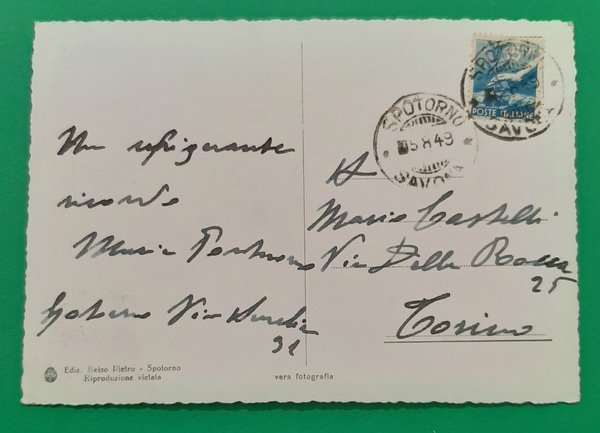 Un refrigerante
ricordo
Maria
Spotorno Via Aurelia
91
SPOTORNO
5.8.49
SAVONA
SPOTORNO
SAVONA
POSTE ITALIANE
A
Mario Castelli
Via Della Rocca
25
Torino
Ediz. Beiso Pietro - Spotorno
Riproduzione vietata
vera fotografia